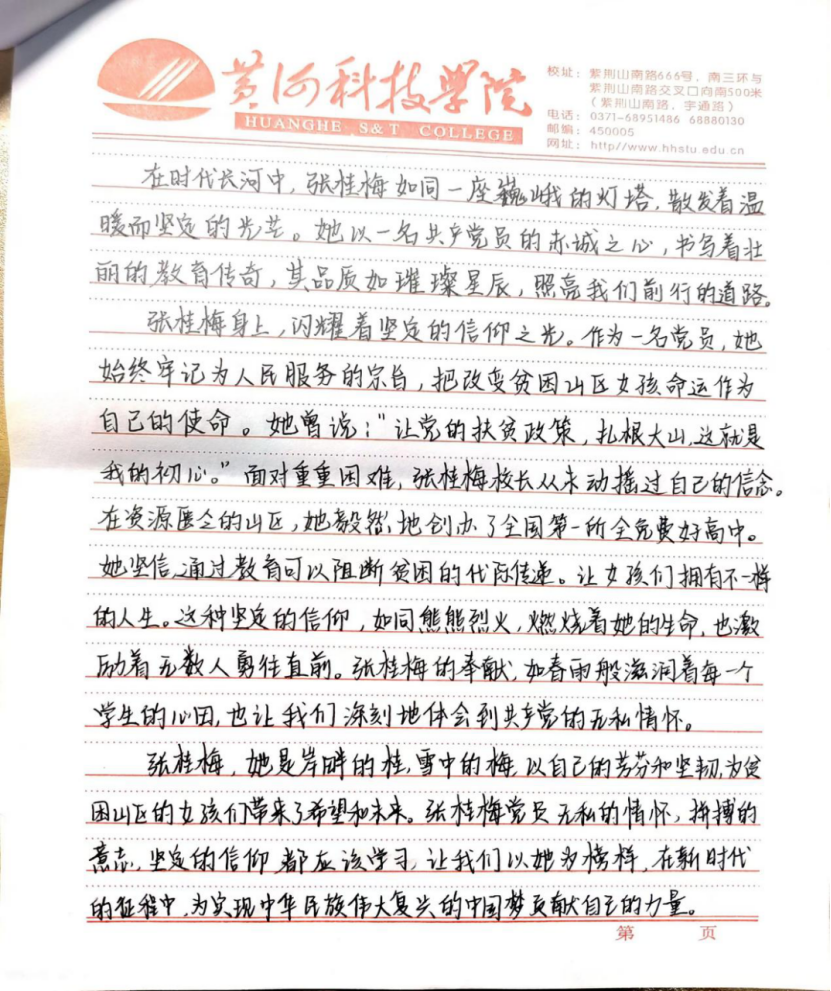 黄河科技学院
HUANGHE S&T COLLEGE
校址：紫荆山南路666号，南三环与
紫荆山南路交叉口向南500米
（紫荆山南路、宇通路）
电话：0371-68951486 68880130
邮编：450005
网址：http//www.hhstu.edu.cn
在时代长河中，张桂梅如同一座巍峨的灯塔，散发着温
暖而坚定的光芒。她以一名共产党员的赤诚之心，书写着壮
丽的教育传奇，其品质如璀璨星辰，照亮我们前行的道路。
张桂梅身上，闪耀着坚定的信仰之光。作为一名党员，她
始终牢记为人民服务的宗旨，把改变贫困山区女孩命运作为
自己的使命。她曾说："让党的扶贫政策，扎根大山，这就是
我的初心。"面对重重困难，张桂梅校长从未动摇过自己的信念。
在资源匮乏的山区，她毅然地创办了全国第一所全免费女高中。
她坚信，通过教育可以阻断贫困的代际传递。让女孩们拥有不一样
的人生。这种坚定的信仰，如同熊熊烈火，燃烧着她的生命，也激
励着无数人勇往直前。张桂梅的奉献，如春雨般滋润着每一个
学生的心田，也让我们深刻地体会到共产党的无私情怀。
张桂梅，她是岸畔的桂，雪中的梅，以自己的芳芬和坚韧，为贫
困山区的女孩们带来了希望和未来。张桂梅党员无私的情怀，拼搏的
意志，坚定的信仰都应该学习，让我们以她为榜样，在新时代
的征程中，为实现中华民族伟大复兴的中国梦贡献自己的力量。
第 页